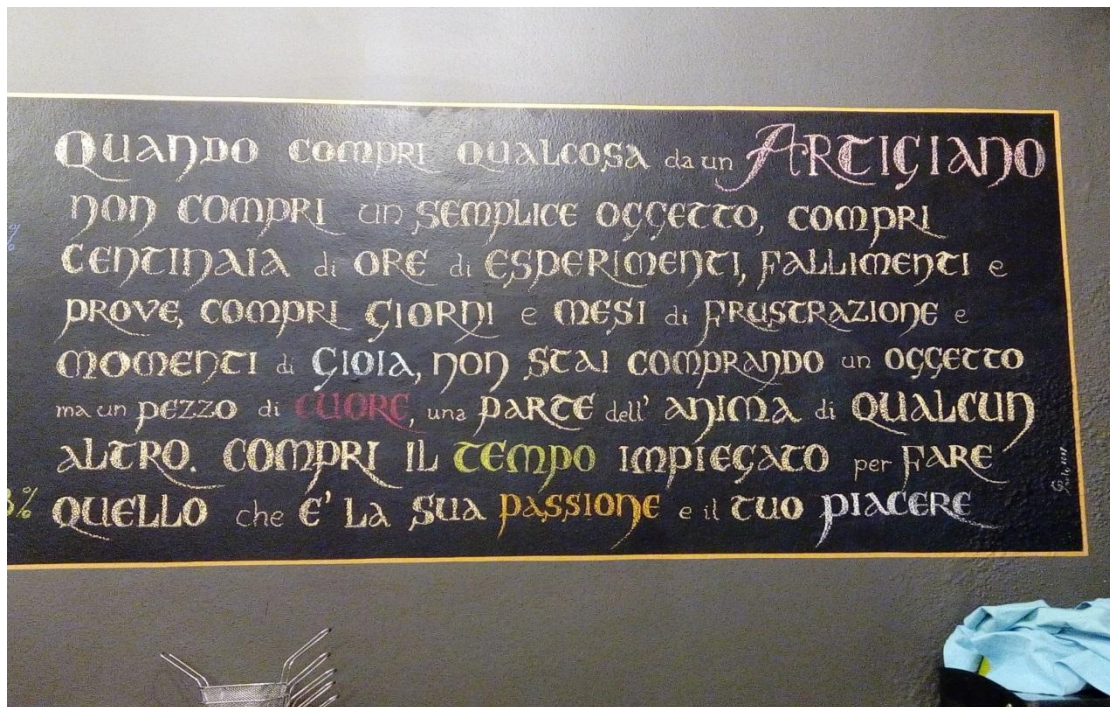 Quando compri qualcosa da un Artigiano
non compri un semplice oggetto, compri
centinaia di ore di esperimenti, fallimenti e
prove, compri giorni e mesi di frustrazione e
momenti di gioia, non stai comprando un oggetto
ma un pezzo di cuore, una parte dell' anima di qualcun
altro. compri il tempo impiegato per fare
quello che e' la sua passione e il tuo piacere
%
3%